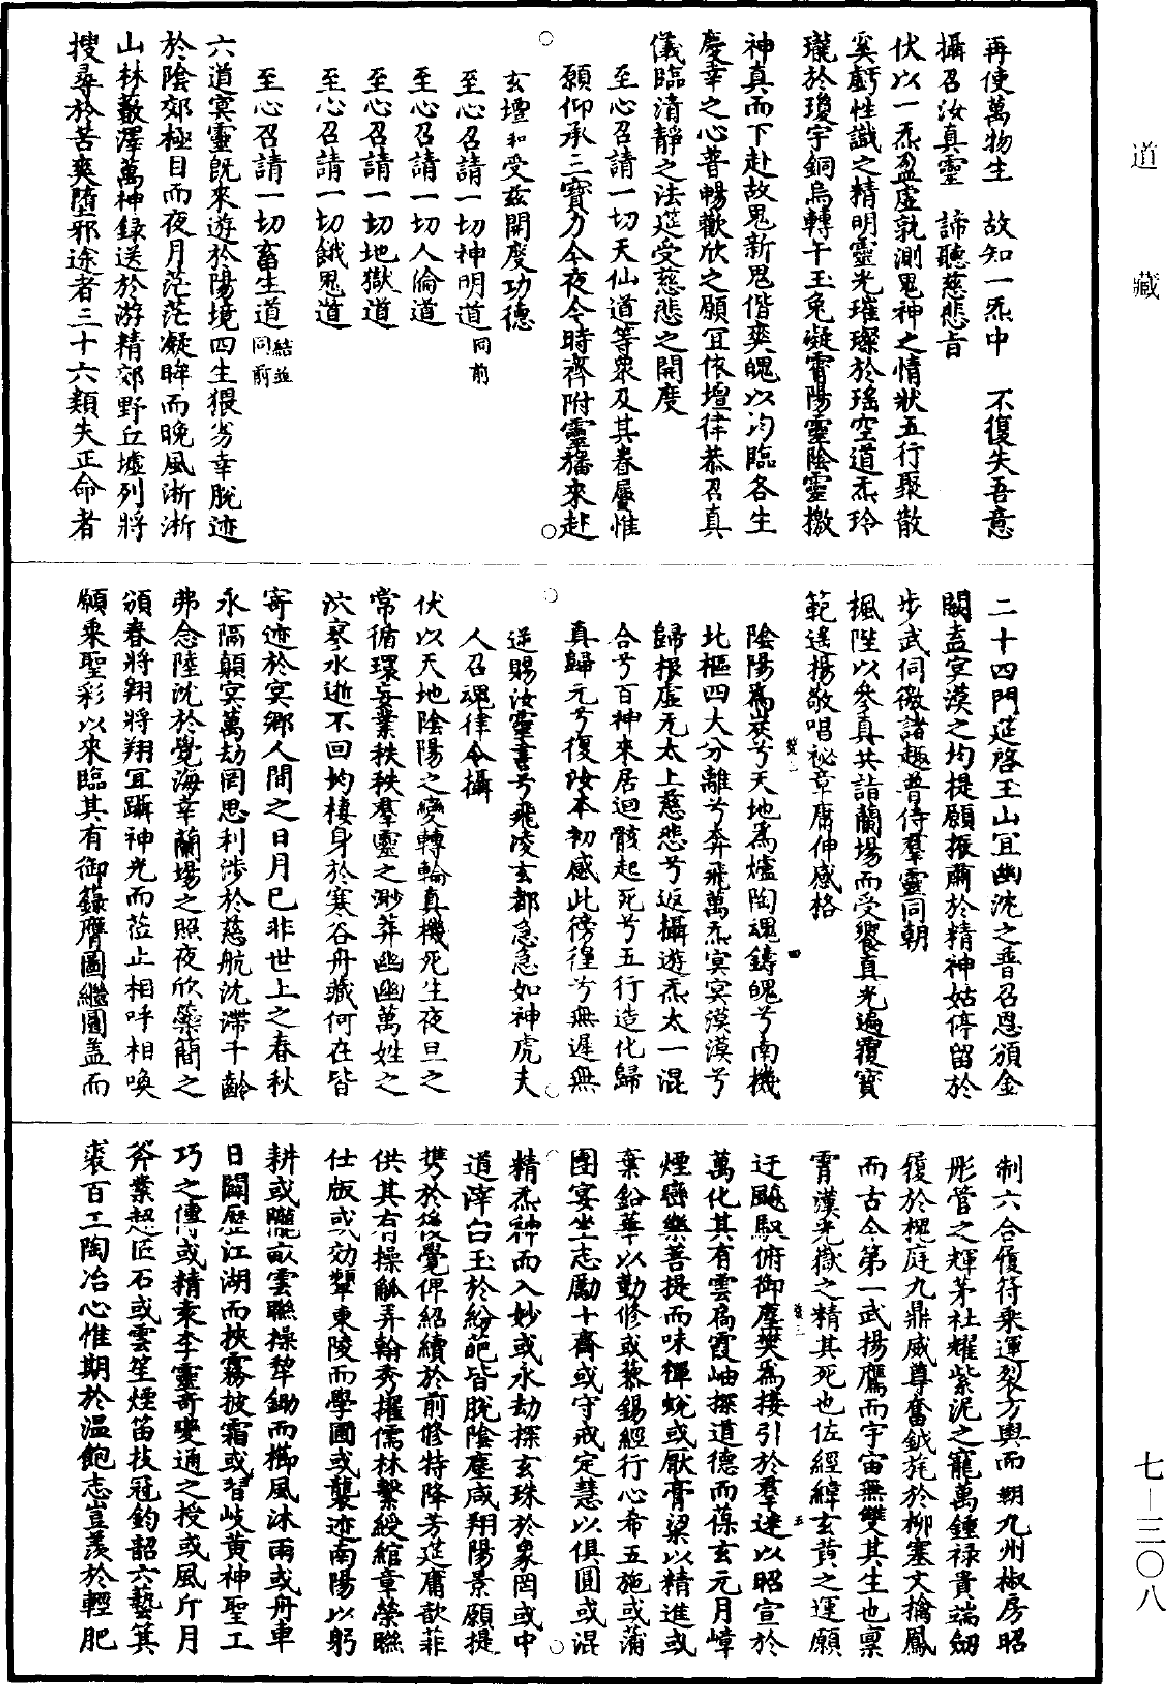 道藏
七—三〇八
再使萬物生　故知一炁中　不復失吾意
攝召汝真靈　諦聽慈悲旨
伏以一炁盈虛孰測鬼神之情狀五行聚散
奚虧性識之精明靈光璀璨於瑤空道炁玲
瓏於瓊宇銅烏轉午玉兔凝霄陽靈陰靈撤
神真而下赴故鬼新鬼偕爽魄以均臨各生
慶幸之心普暢歡欣之願宜依壇律恭召真
儀臨清靜之法筵受慈悲之開度
至心召請一切天仙道等眾及其眷屬惟
願仰承三寶力今夜令時齊附靈旛來赴
玄壇和受茲開度功德
至心召請一切神明道同前
至心召請一切人倫道
至心召請一切地獄道
至心召請一切餓鬼道
至心召請一切畜生道結並同前
六道冥靈既來遊於陽境四生猥劣幸脫迹
於陰郊極目而夜月茫茫凝眸而晚風淅淅
山林藪澤萬神録送於游精郊野丘墟列將
搜尋於苦爽墮邪途者三十六類失正命者
二十四門筵啓玉山宜幽沈之普召恩頒金
闕盍冥漠之均提願振薾於精神姑停留於
步武伺徹諸趣普侍羣靈同朝
楓陛以參真共詣蘭場而受饗真光遍覆寶
範遙揚敬唱祕章庸伸感格
陰陽為炭兮天地為爐陶魂鑄魄兮南機
北樞四大分離兮奔飛萬炁冥冥漠漠兮
歸根虛无太上慈悲兮返攝遊炁太一混
合兮百神來居迴骸起死兮五行造化歸
真歸元兮復汝本初感此徬徨兮無遲無
逆賜汝靈書兮飛凌玄都急急如神虎夫
人召魂律令攝
伏以天地陰陽之變轉輪真機死生夜旦之
常循環妄業秩秩羣靈之渺莽幽幽萬姓之
泬寥水逝不回均棲身於寒谷舟藏何在皆
寄迹於冥鄉人間之日月已非世上之春秋
永隔顛冥萬劫罔思利涉於慈航沈滯千齡
弗念陸沈於覺海幸蘭場之照夜欣籙簡之
頒春將翔將翔宜躡神光而蒞止相呼相喚
願乘聖彩以來臨其有御籙膺圖繼圖盖而
制六合履符乘運裂方輿而朝九州椒房昭
彤管之輝茅社耀紫泥之寵萬鍾禄貴端劒
履於槐庭九鼎威尊奮鉞旄於柳塞文擒鳳
而古今第一武揚鷹而宇宙無雙其生也禀
霄漢光嶽之精其死也佐經緯玄黄之運願
迂飈馭俯御塵樊為接引於羣迷以昭宣於
萬化其有雲扃霞岫探道德而葆玄元月嶂
煙巒樂菩提而味禪蛻或厭膏粱以精進或
棄鉛華以勤修或蔡錫經行心希五施或蒲
團宴坐志勵十齋或守戒定慧以俱圓或混
精炁神而入妙或永劫探玄珠於象罔或中
道滓白玉於紛葩皆脫陰塵咸翔陽景願提
携於後覺俾紹續於前修特降芳筵庸歆菲
供其有操觚弄翰秀擢儒林繫綬綰章榮聯
仕版或効顰東陵而學圃或襲迹南陽以躬
耕或隴畝雲聯操犂鋤而櫛風沐雨或舟車
日闢歷江湖而挾霧披霜或習岐黄神聖工
巧之傳或精乘李靈奇變通之授或風斤月
斧業懇匠石或雲笙煙笛技冠鈞韶六藝箕
裘百工陶冶心惟期於温飽志豈羨於輕肥